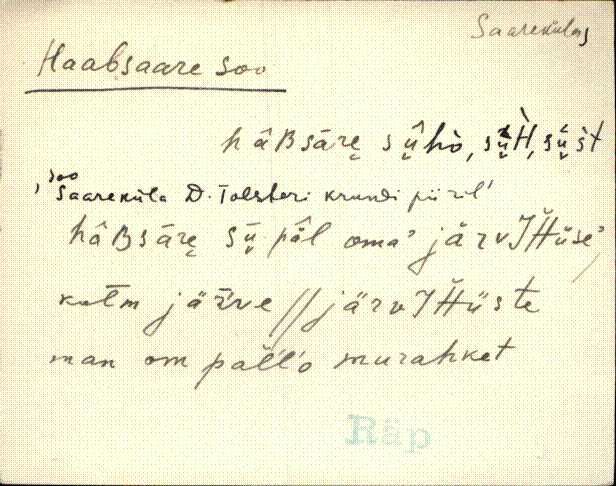 Saareküla
Haabsaare soo
hâBsāre̮ sṷ̄̂hò, sṷ̄̀H, sṷ̄́śt
, soo
Saareküla D. Tolsteri krundi piiril'
hâBsāre̮ sṷ̄ pâl oma' järvIȞüse'
katm jäŕve // järvIȞüste
man om pall'l'o murahket
Räp